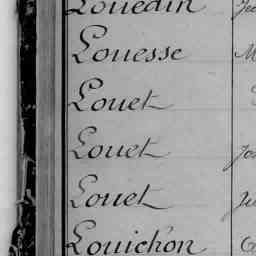 Louedin
Louesse
Louet
Louet
Louet
Louichon